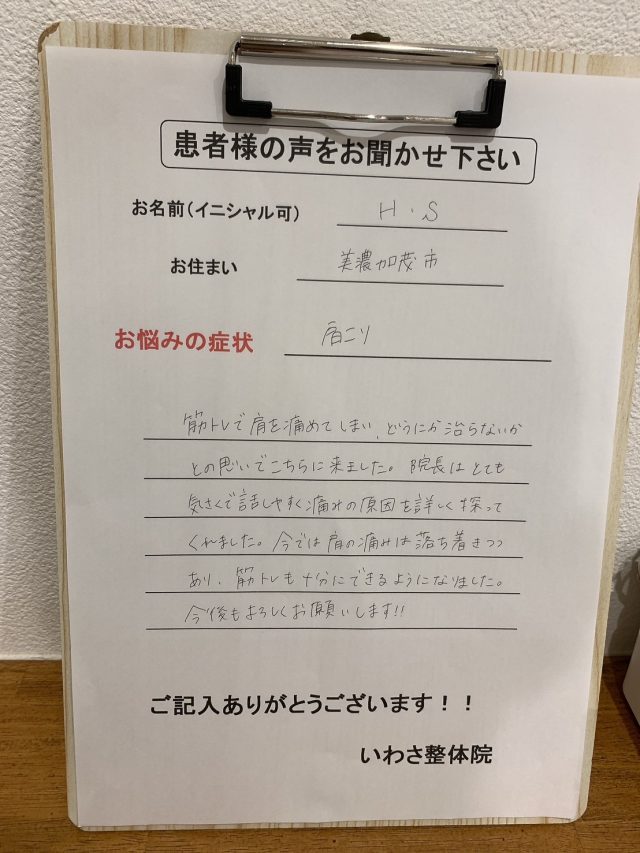 患者様の声をお聞かせ下さい
お名前（イニシャル可） H・S
お住まい 美濃加茂市
お悩みの症状 肩こり
筋トレで肩を痛めてしまい、どうにか治らないか
との思いでこちらに来ました。院長はとても
気さくで話しやすく痛みの原因を詳しく探って
くれました。今では肩の痛みは落ち着きつつ
あり、筋トレも十分にできるようになりました。
今後もよろしくお願いします!!
ご記入ありがとうございます！！
いわさ整体院